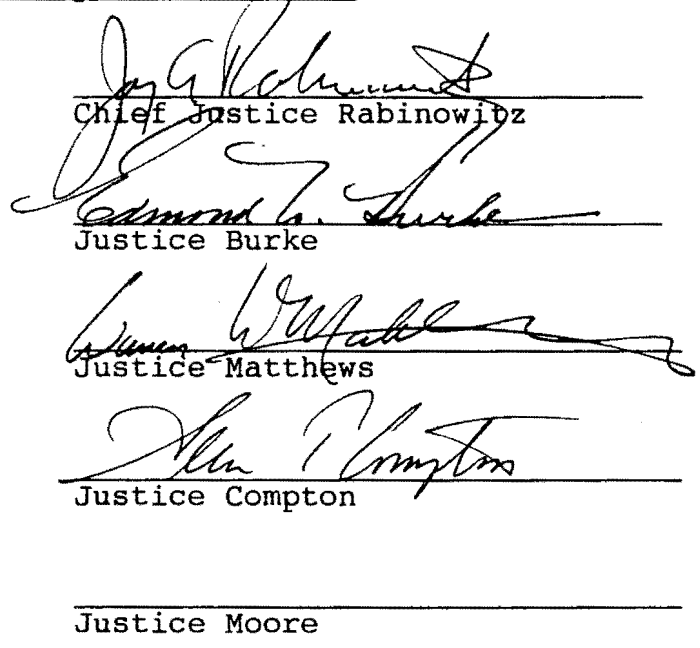 Jay A Rabinowitz
Chief Justice Rabinowitz
Edmond W. Burke
Justice Burke
Warren W Matthews
Justice Matthews
Allen T Compton
Justice Compton
Justice Moore